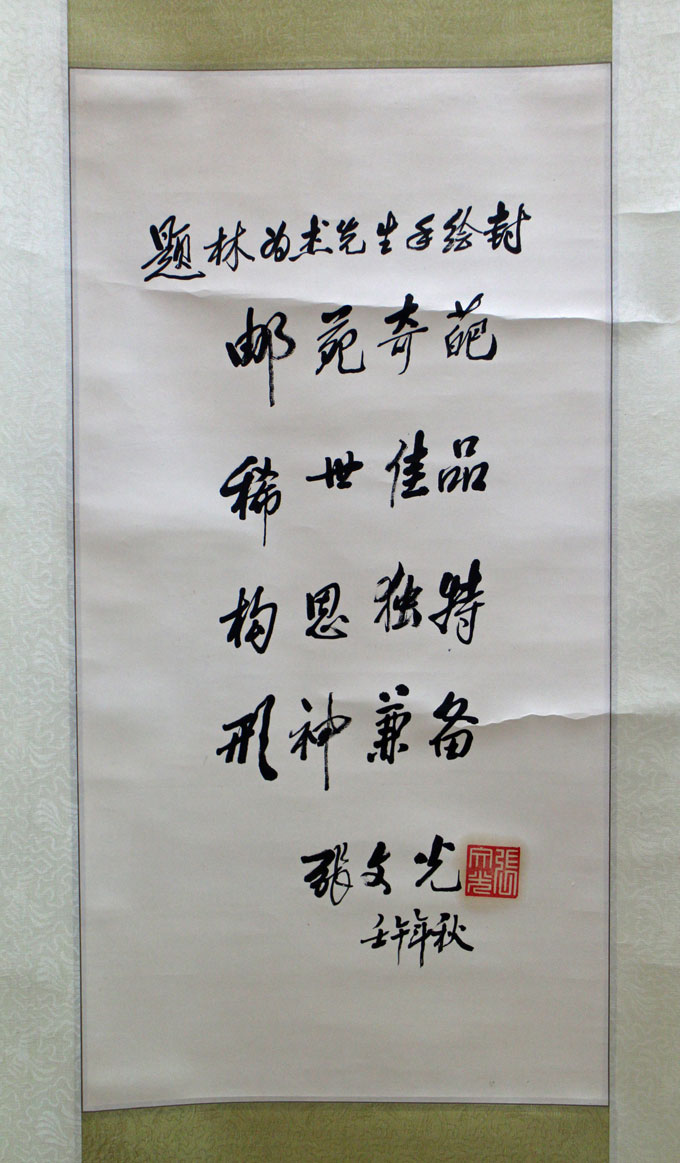 题林为杰先生手绘封
邮苑奇葩
稀世佳品
构思独特
形神兼备
张文光
壬午年秋
张文光